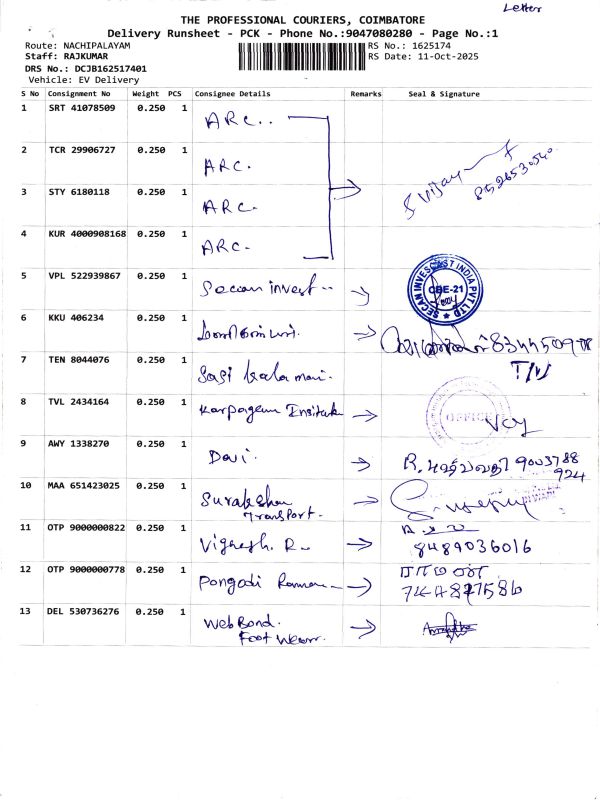 Letter
THE PROFESSIONAL COURIERS, COIMBATORE
Delivery Runsheet - PCK - Phone No.:9047080280 - Page No.:1
Route: NACHIPALAYAM RS No.: 1625174
Staff: RAJKUMAR RS Date: 11-Oct-2025
DRS No.: DCJB162517401
Vehicle: EV Delivery
S No Consignment No Weight PCS Consignee Details Remarks Seal & Signature
1 SRT 41078509 0.250 1 ARC..
2 TCR 29906727 0.250 1 ARC. Vijay
3 STY 6180118 0.250 1 ARC.
4 KUR 4000908168 0.250 1 ARC.
5 VPL 522939867 0.250 1 Seccan invest.. SECAN INVESCAST INDIA PVT LTD CBE-21
6 KKU 406234 0.250 1
7 TEN 8044076 0.250 1 Sasi kala mani.
8 TVL 2434164 0.250 1 Karpagam Institute OFFICE
9 AWY 1338270 0.250 1 Devi. 9003788
924
10 MAA 651423025 0.250 1 Surakshaa
Transport.
11 OTP 9000000822 0.250 1 Vignesh. R. 8489036016
12 OTP 9000000778 0.250 1 Pongodi Raman
13 DEL 530736276 0.250 1 Web Bond.
Foot Wear.